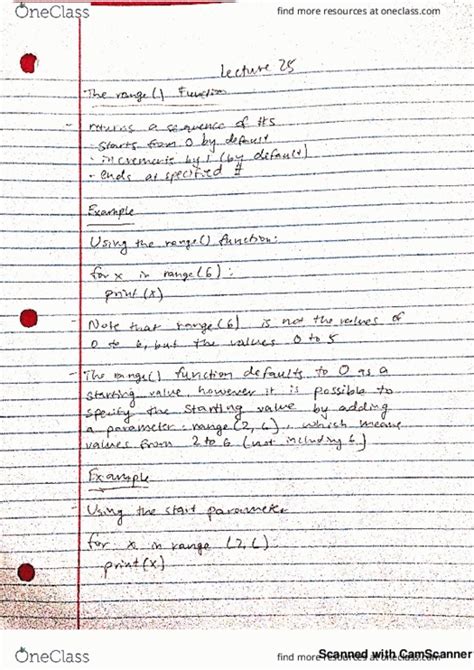 OneClass
find more resources at oneclass.com
Lecture 25
The range() Function
- returns a sequence of #s
- starts from 0 by default
- increments by 1 (by default)
- ends at specified #
Example
Using the range() function:
for x in range(6):
print(x)
- Note that range(6) is not the values of
0 to 6, but the values 0 to 5
- The range() function defaults to 0 as a
starting value, however it is possible to
specify the starting value by adding
a parameter: range(2,6), which means
values from 2 to 6 (not including 6)
Example
- Using the start parameter
for x in range (2,6):
print(x)
OneClass
find more resources at oneclass.com
Scanned with CamScanner